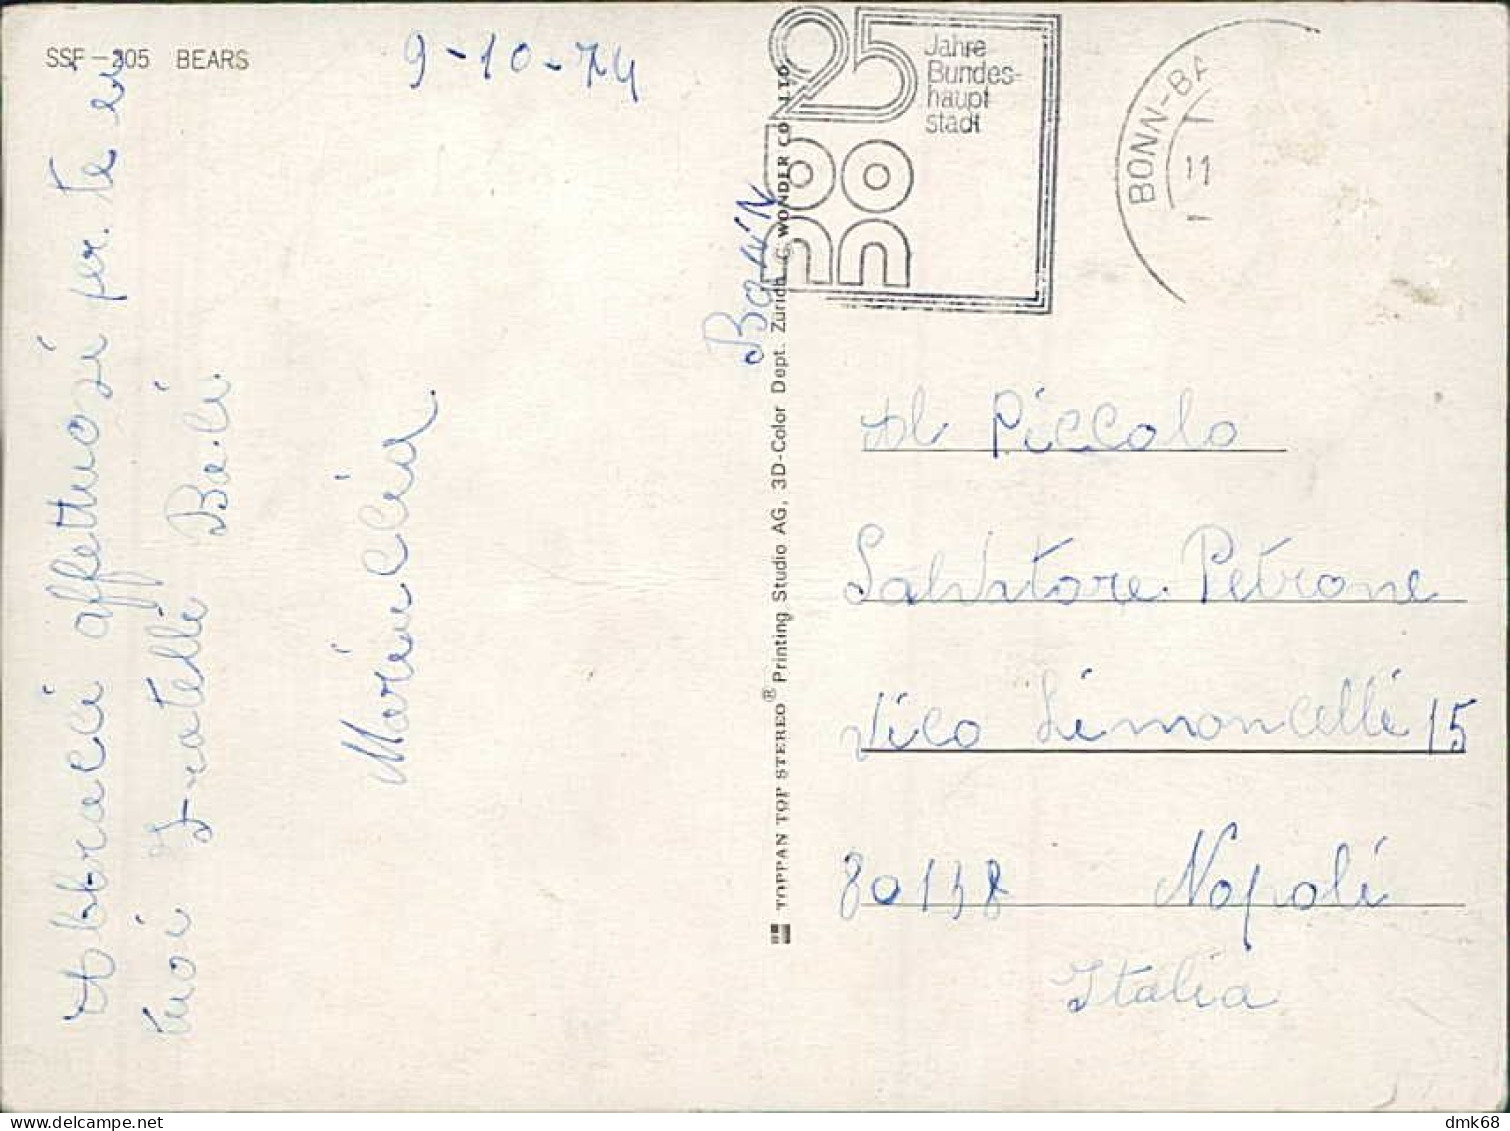 SSF-205 BEARS
9-10-74
Abbracci affettuosi per te e i
tuoi fratelli Baci
Mariuccia
BONN
TOPPAN TOP STEREO® Printing Studio AG, 3D-Color Dept. Zürich WONDER CO. LTD.
25
Jahre
Bundes-
haupt
stadt
BONN-BA
11
Al Piccolo
Salvatore Petrone
Vico Limoncelli 15
80138 Napoli
Italia
dmk68